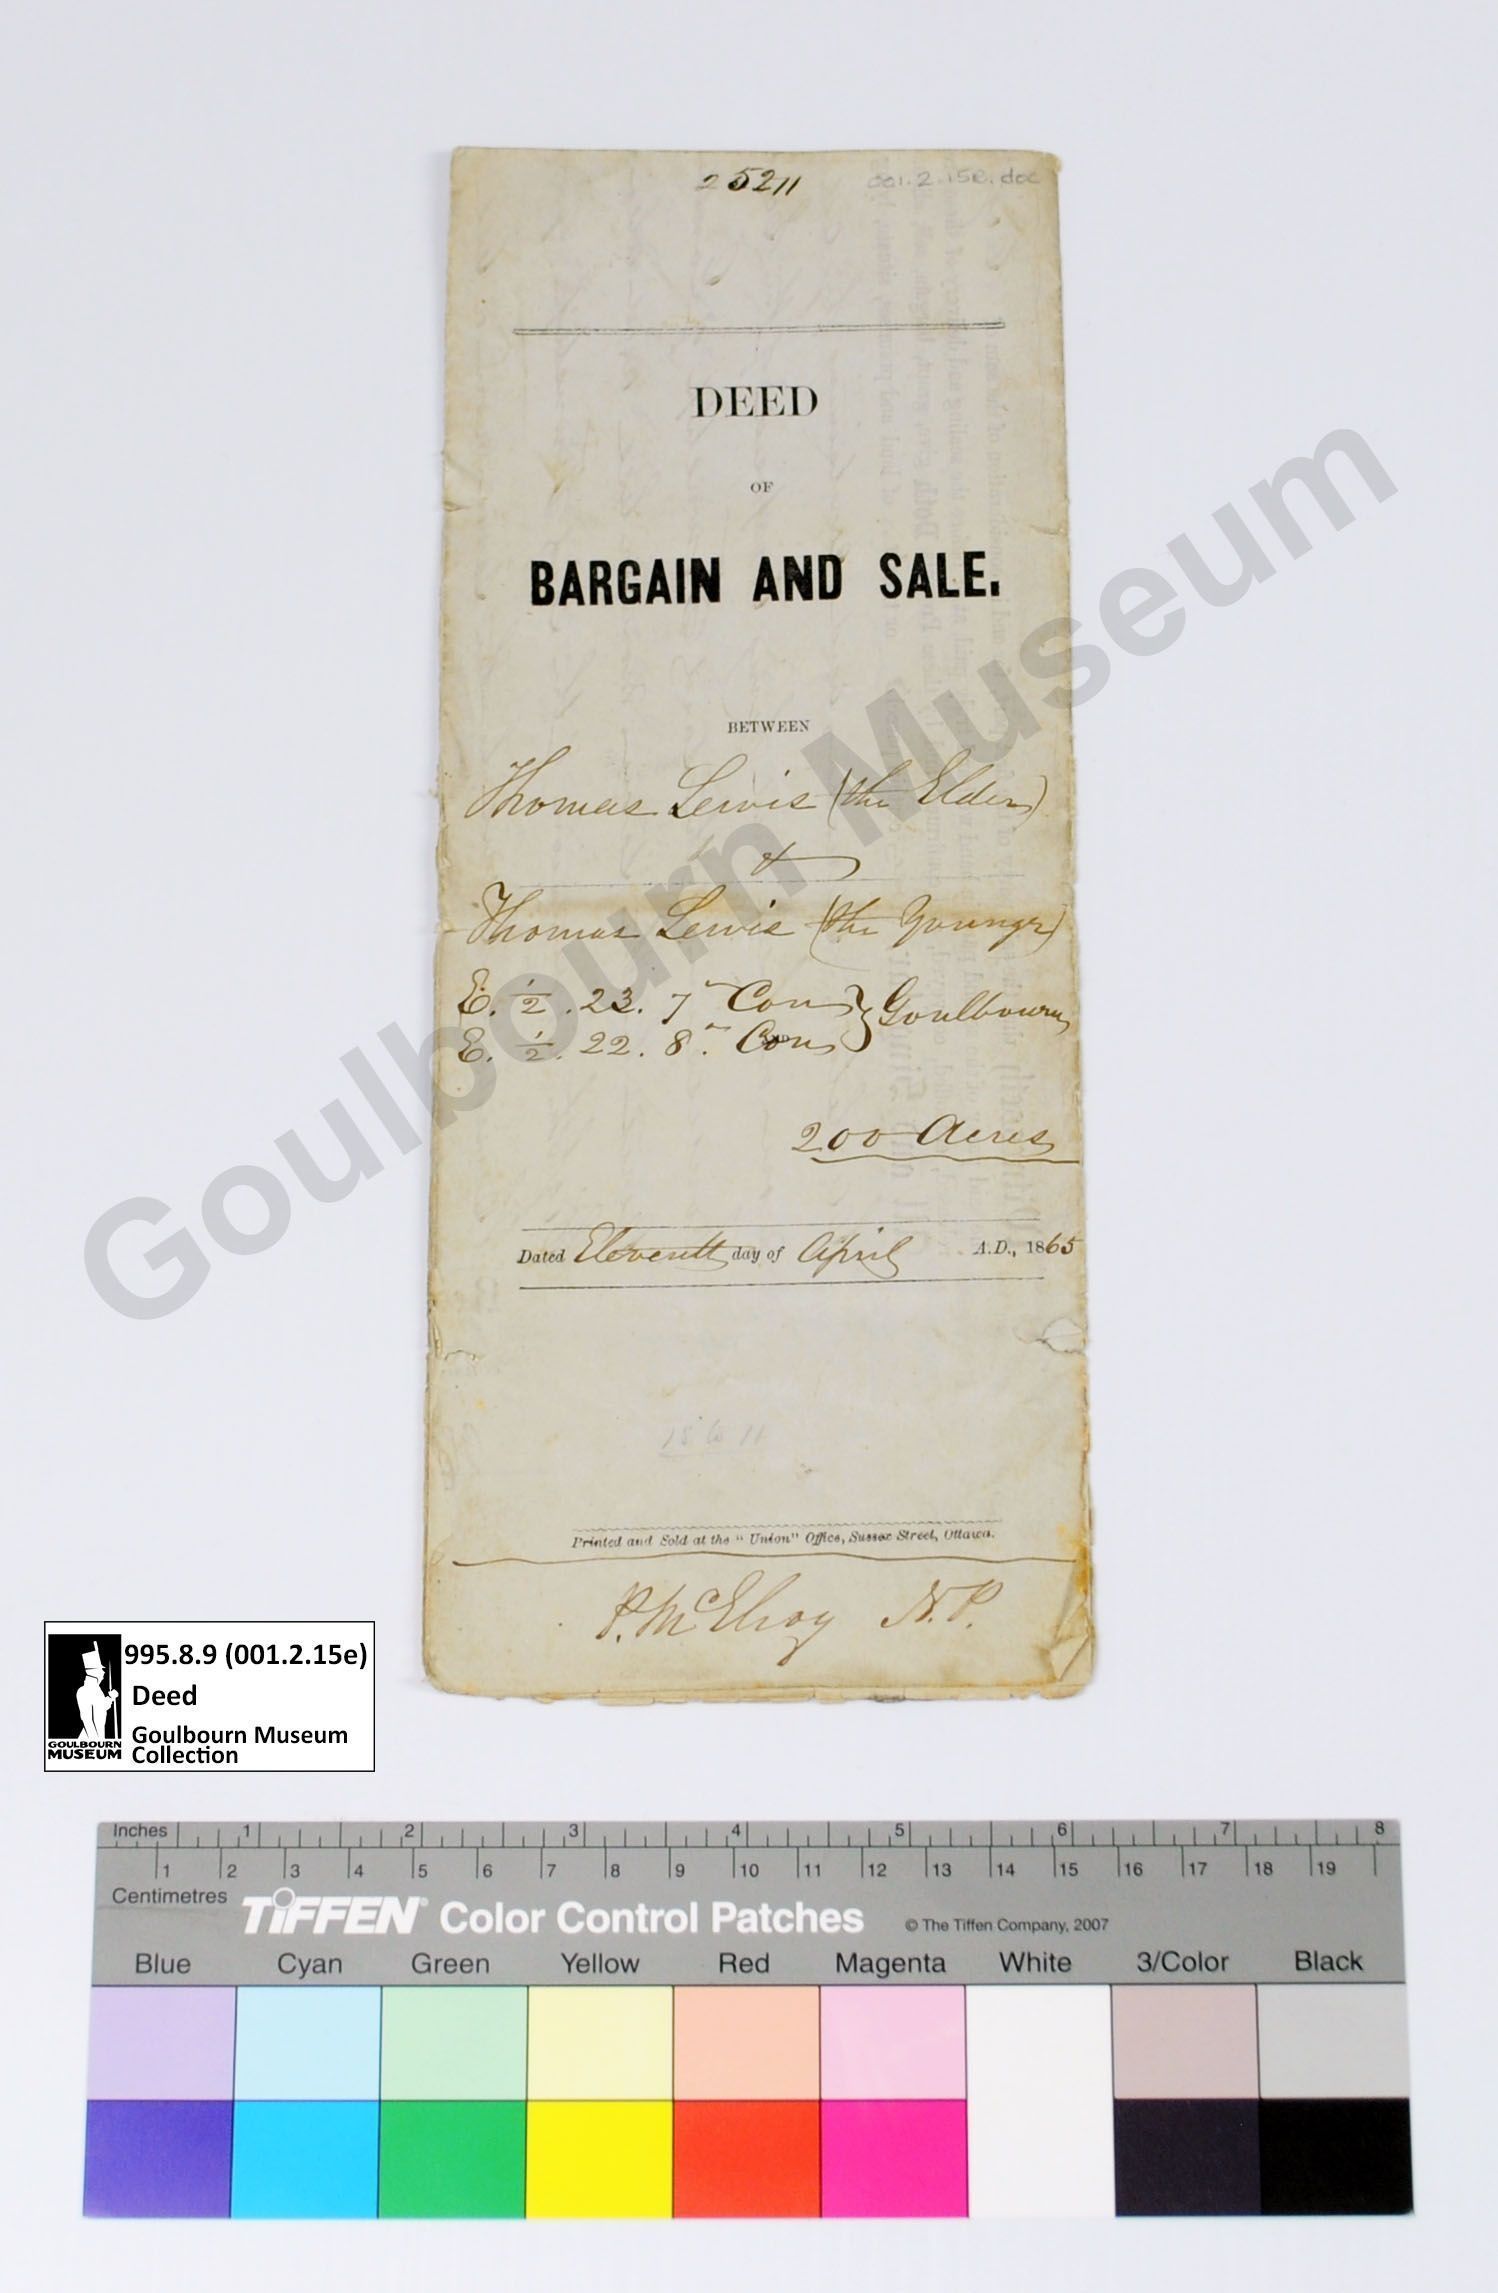 25211
001.2.15e.doc
DEED
OF
BARGAIN AND SALE.
BETWEEN
Thomas Lewis (the Elder)
&
Thomas Lewis (the Younger)
E. 1/2 . 23. 7" Con } Goulbourn
E. 1/2 . 22. 8" Con
200 Acres
Dated Eleventh day of April A.D., 1865
15 to 11
Printed and Sold at the "Union" Office, Sussex Street, Ottawa.
P. McElroy N.P.
Goulbourn Museum
995.8.9 (001.2.15e)
Deed
Goulbourn Museum
Collection
GOULBOURN
MUSEUM
Inches 1 2 3 4 5 6 7 8
1 2 3 4 5 6 7 8 9 10 11 12 13 14 15 16 17 18 19
Centimetres
TIFFEN® Color Control Patches © The Tiffen Company, 2007
Blue Cyan Green Yellow Red Magenta White 3/Color Black